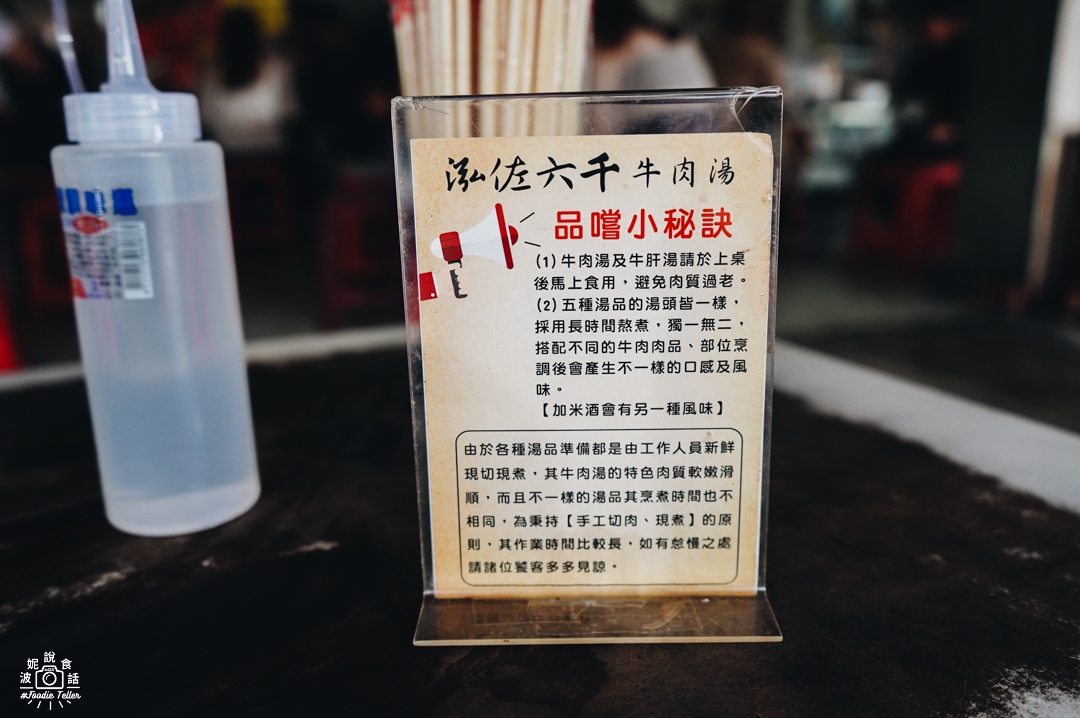 泓佐六千牛肉湯
品嚐小秘訣
(1)牛肉湯及牛肝湯請於上桌
後馬上食用，避免肉質過老。
(2)五種湯品的湯頭皆一樣，
採用長時間熬煮，獨一無二，
搭配不同的牛肉肉品、部位烹
調後會產生不一樣的口感及風
味。
【加米酒會有另一種風味】
由於各種湯品準備都是由工作人員新鮮
現切現煮，其牛肉湯的特色肉質軟嫩滑
順，而且不一樣的湯品其烹煮時間也不
相同，為秉持【手工切肉、現煮】的原
則，其作業時間比較長，如有怠慢之處
請諸位饕客多多見諒。
妮說食
波話
#Foodie Teller